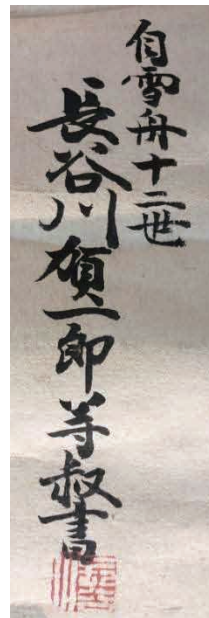 自雪舟十二世
長谷川賀一郎等叔書